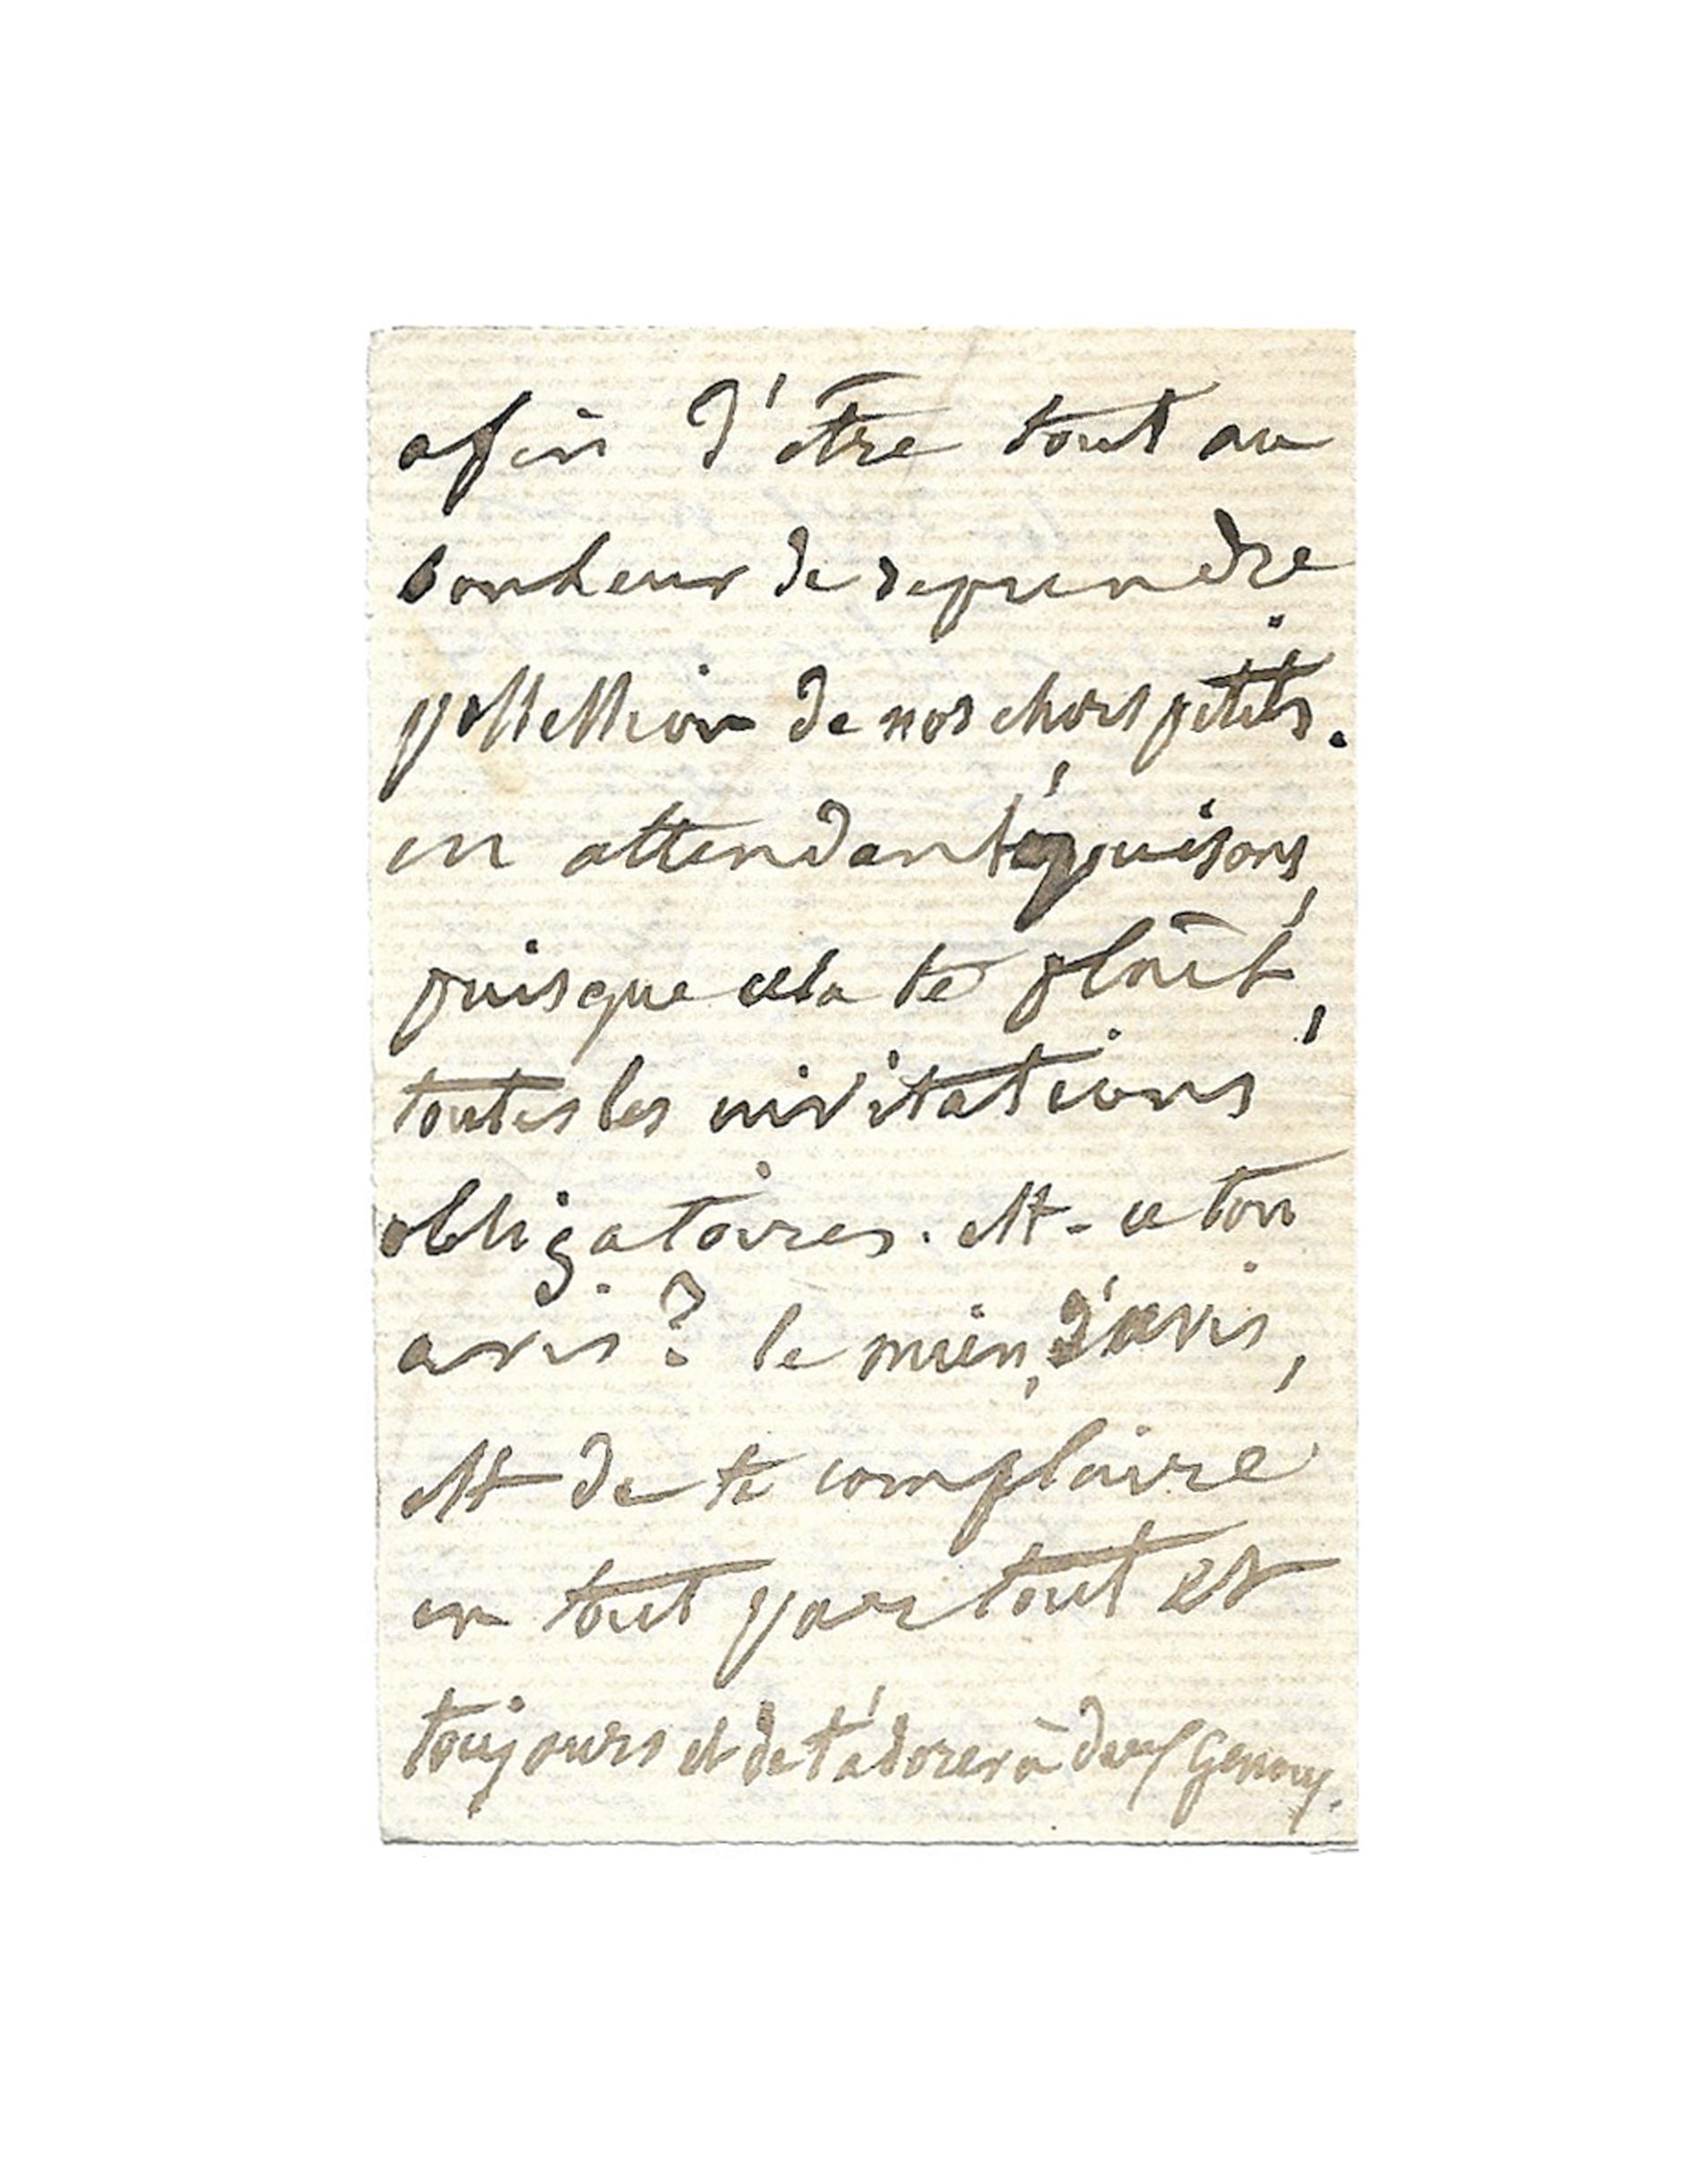 afin d'être tout au
bonheur de reprendre
possession de nos chers petits.
en attendant épuisons,
puisque cela te plaît,
toutes les invitations
obligatoires. est-ce ton
avis ? le mien, d'avis,
est de te complaire
en tout partout et
toujours et de t'adorer à deux genoux.